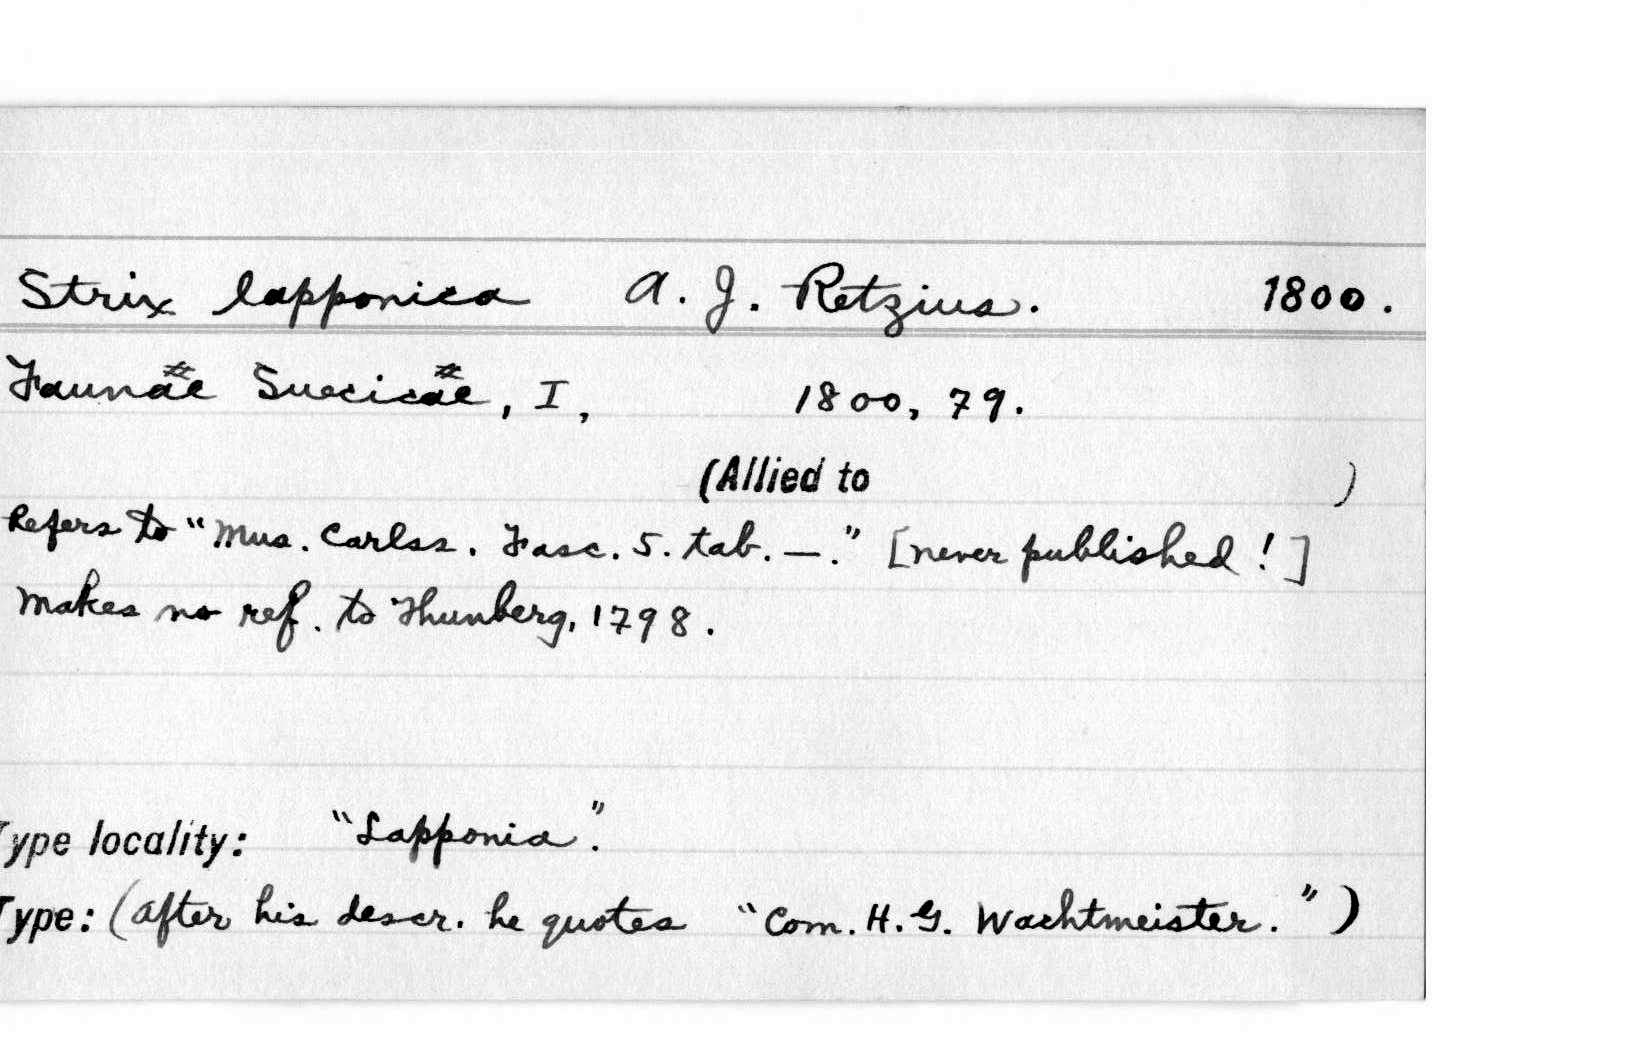 Strix lapponica A. J. Retzius. 1800.
Faunae Suecicae, I, 1800, 79.
(Allied to )
Refers to "Mus. Carlss. Fasc. 5. tab. —." [never published!]
Makes no ref. to Thunberg, 1798.
Type locality: "Lapponia".
Type: (After his descr. he quotes "Com. H. G. Wachtmeister.")